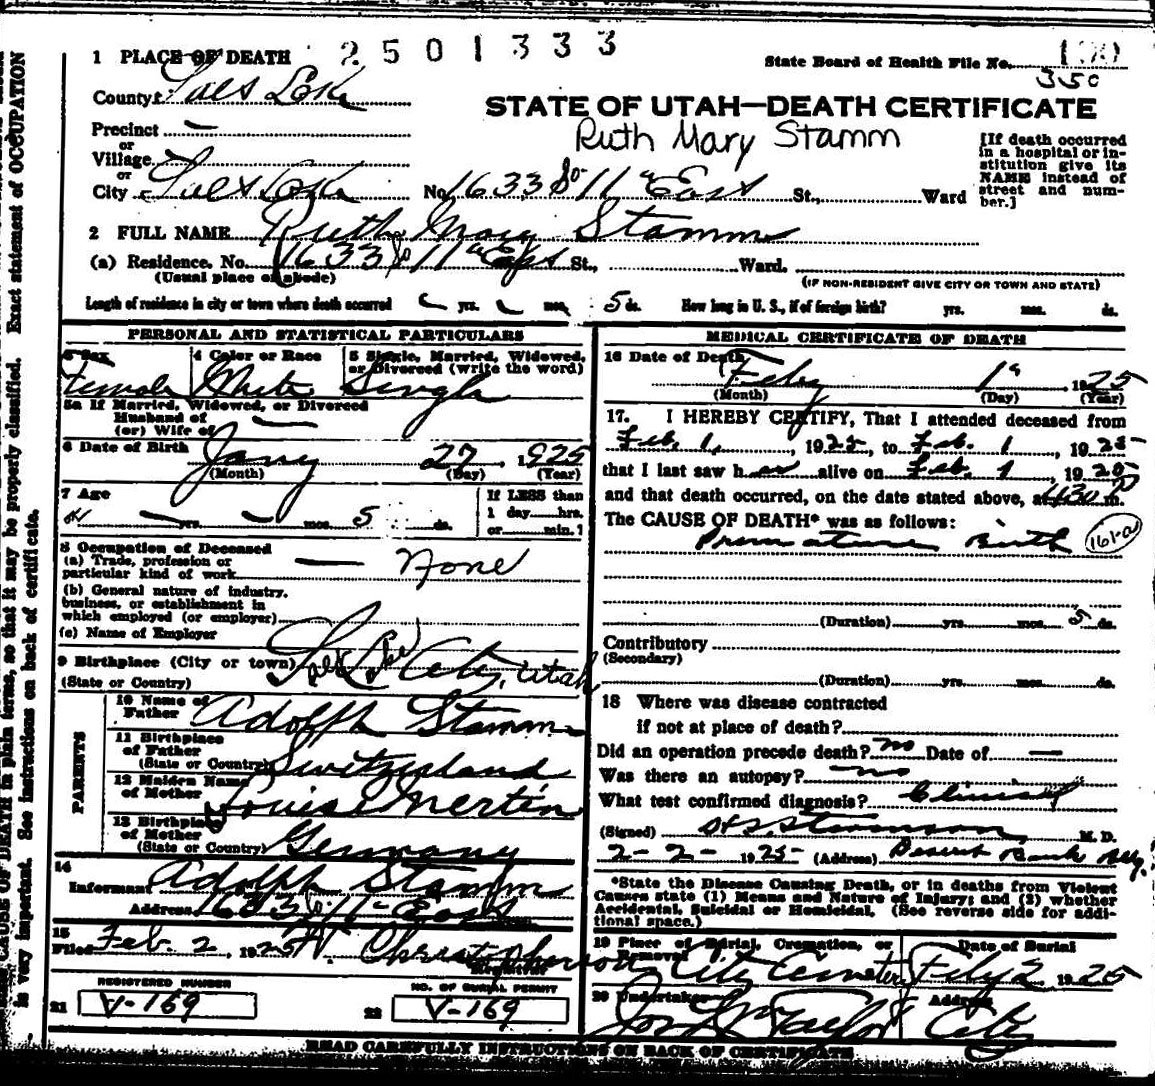 2501333
1 PLACE OF DEATH
State Board of Health File No. 190
350
County Salt Lake
STATE OF UTAH—DEATH CERTIFICATE
Precinct —
Ruth Mary Stamm
[If death occurred in a hospital or institution give its NAME instead of street and number.]
or
Village
or
City Salt Lake No. 1633 So 11th East St., Ward
2 FULL NAME Ruth Mary Stamm
(a) Residence. No. 1633 So 11th East St., Ward.
(Usual place of abode) (IF NON-RESIDENT GIVE CITY OR TOWN AND STATE)
Length of residence in city or town where death occurred yrs. mos. 5 ds. How long in U. S., if of foreign birth? yrs. mos. ds.
PERSONAL AND STATISTICAL PARTICULARS
3 Sex 4 Color or Race 5 Single, Married, Widowed, or Divorced (write the word)
Female White Single
5a If Married, Widowed, or Divorced
Husband of
(or) Wife of —
6 Date of Birth Jany 27, 1925
(Month) (Day) (Year)
7 Age If LESS than
— yrs. — mos. 5 ds. 1 day hrs.
or min.?
8 Occupation of Deceased
(a) Trade, profession or particular kind of work — None
(b) General nature of industry, business, or establishment in which employed (or employer)
(c) Name of Employer
9 Birthplace (City or town) Salt Lake City, Utah
(State or Country)
PARENTS
10 Name of Father Adolph Stamm
11 Birthplace of Father
(State or Country) Switzerland
12 Maiden Name of Mother Louise Mertin
13 Birthplace of Mother
(State or Country) Germany
14
Informant Adolph Stamm
Address 1633 So 11th East
15
Filed Feb. 2, 1925 W. Christopherson
Registrar
REGISTERED NUMBER NO. OF BURIAL PERMIT
21 V-169 22 V-169
MEDICAL CERTIFICATE OF DEATH
16 Date of Death
Feby 1st 1925
(Month) (Day) (Year)
17. I HEREBY CERTIFY, That I attended deceased from
Feb. 1, 1925, to Feb. 1 1925
that I last saw h er alive on Feb. 1, 1925
and that death occurred, on the date stated above, at 1130 P m.
The CAUSE OF DEATH* was as follows:
Premature Birth 161-a
(Duration) yrs. mos. 5 ds.
Contributory
(Secondary)
(Duration) yrs. mos. ds.
18 Where was disease contracted
if not at place of death?
Did an operation precede death? no Date of —
Was there an autopsy? no
What test confirmed diagnosis? Clinical
(Signed) M. D.
2-2-1925 (Address) Deseret Bank Bldg.
*State the Disease Causing Death, or in deaths from Violent Causes state (1) Means and Nature of Injury; and (2) whether Accidental, Suicidal or Homicidal. (See reverse side for additional space.)
19 Place of Burial, Cremation, or Removal Date of Burial
City Cemetery Feby 2 1925
20 Undertaker Address
Jos Wm Taylor City
READ CAREFULLY INSTRUCTIONS ON BACK OF CERTIFICATE
CAUSE OF DEATH in plain terms, so that it may be properly classified. Exact statement of OCCUPATION
is very important. See instructions on back of certificate.